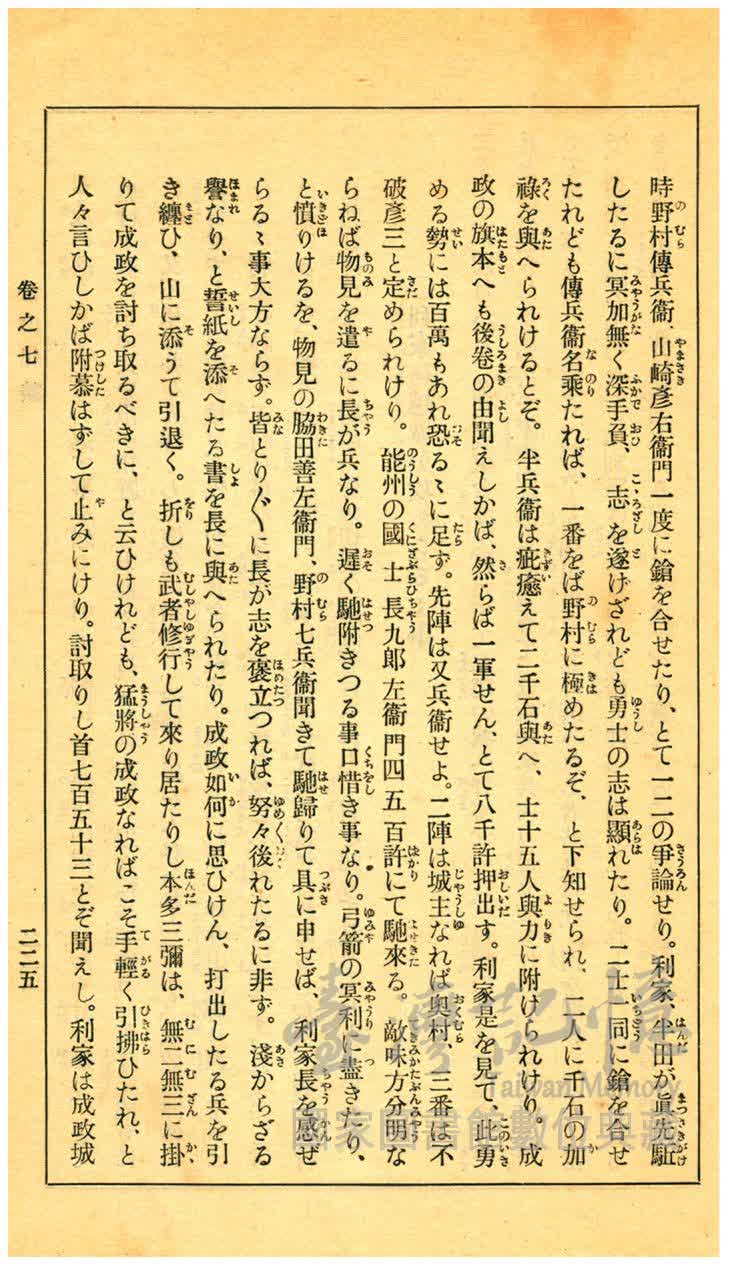 時野村傳兵衞、山崎彥右衞門一度に鎗を合せたり、とて一二の爭論せり。利家、半田が眞先駈
したるに冥加無く深手負、志を遂げざれども勇士の志は顯れたり。二士一同に鎗を合せ
たれども傳兵衞名乘たれば、一番をば野村に極めたるぞ、と下知せられ、二人に千石の加
祿を與へられけるとぞ。半兵衞は疵癒えて二千石與へ、士十五人與力に附けられけり。成
政の旗本へも後卷の由聞えしかば、然らば一軍せん、とて八千許押出す。利家是を見て、此勇
める勢には百萬もあれ恐るゝに足ず。先陣は又兵衞せよ。二陣は城主なれば奧村、三番は不
破彥三と定められけり。能州の國士長九郞左衞門四五百許にて馳來る。敵味方分明な
らねば物見を遣るに長が兵なり。遲く馳附きつる事口惜き事なり。弓箭の冥利に盡きたり、
と憤りけるを、物見の脇田善左衞門、野村七兵衞聞きて馳歸りて具に申せば、利家長を感ぜ
らるゝ事大方ならず。皆とり〴〵に長が志を褒立つれば、努々後れたるに非ず。淺からざる
譽なり、と誓紙を添へたる書を長に與へられたり。成政如何に思ひけん、打出したる兵を引
き纏ひ、山に添うて引退く。折しも武者修行して來り居たりし本多三彌は、無二無三に掛
りて成政を討ち取るべきに、と云ひけれども、猛將の成政なればこそ手輕く引拂ひたれ、と
人々言ひしかば附慕はずして止みにけり。討取りし首七百五十三とぞ聞えし。利家は成政城
卷之七
二二五
臺灣記憶
Taiwan Memory
國家圖書館數位典藏